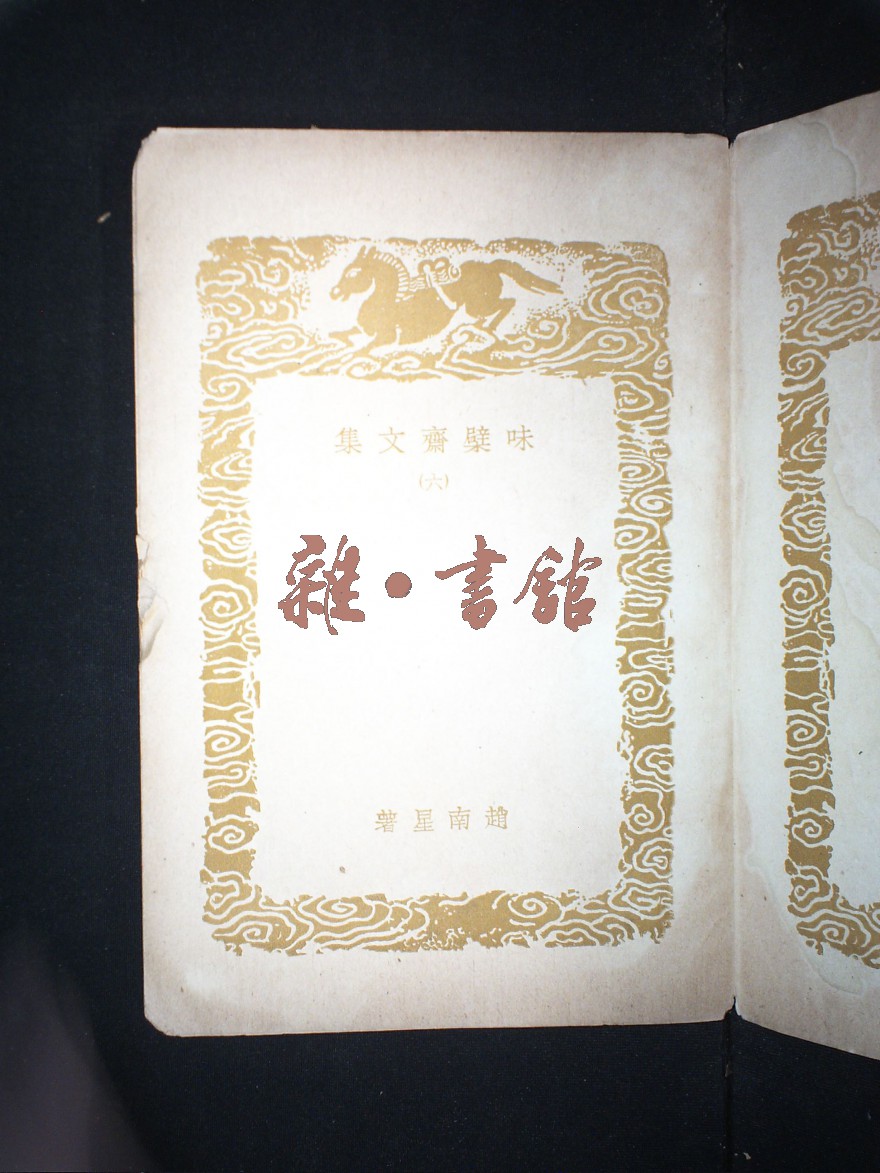 味檗齋文集
(六)
雜·書館
趙南星著